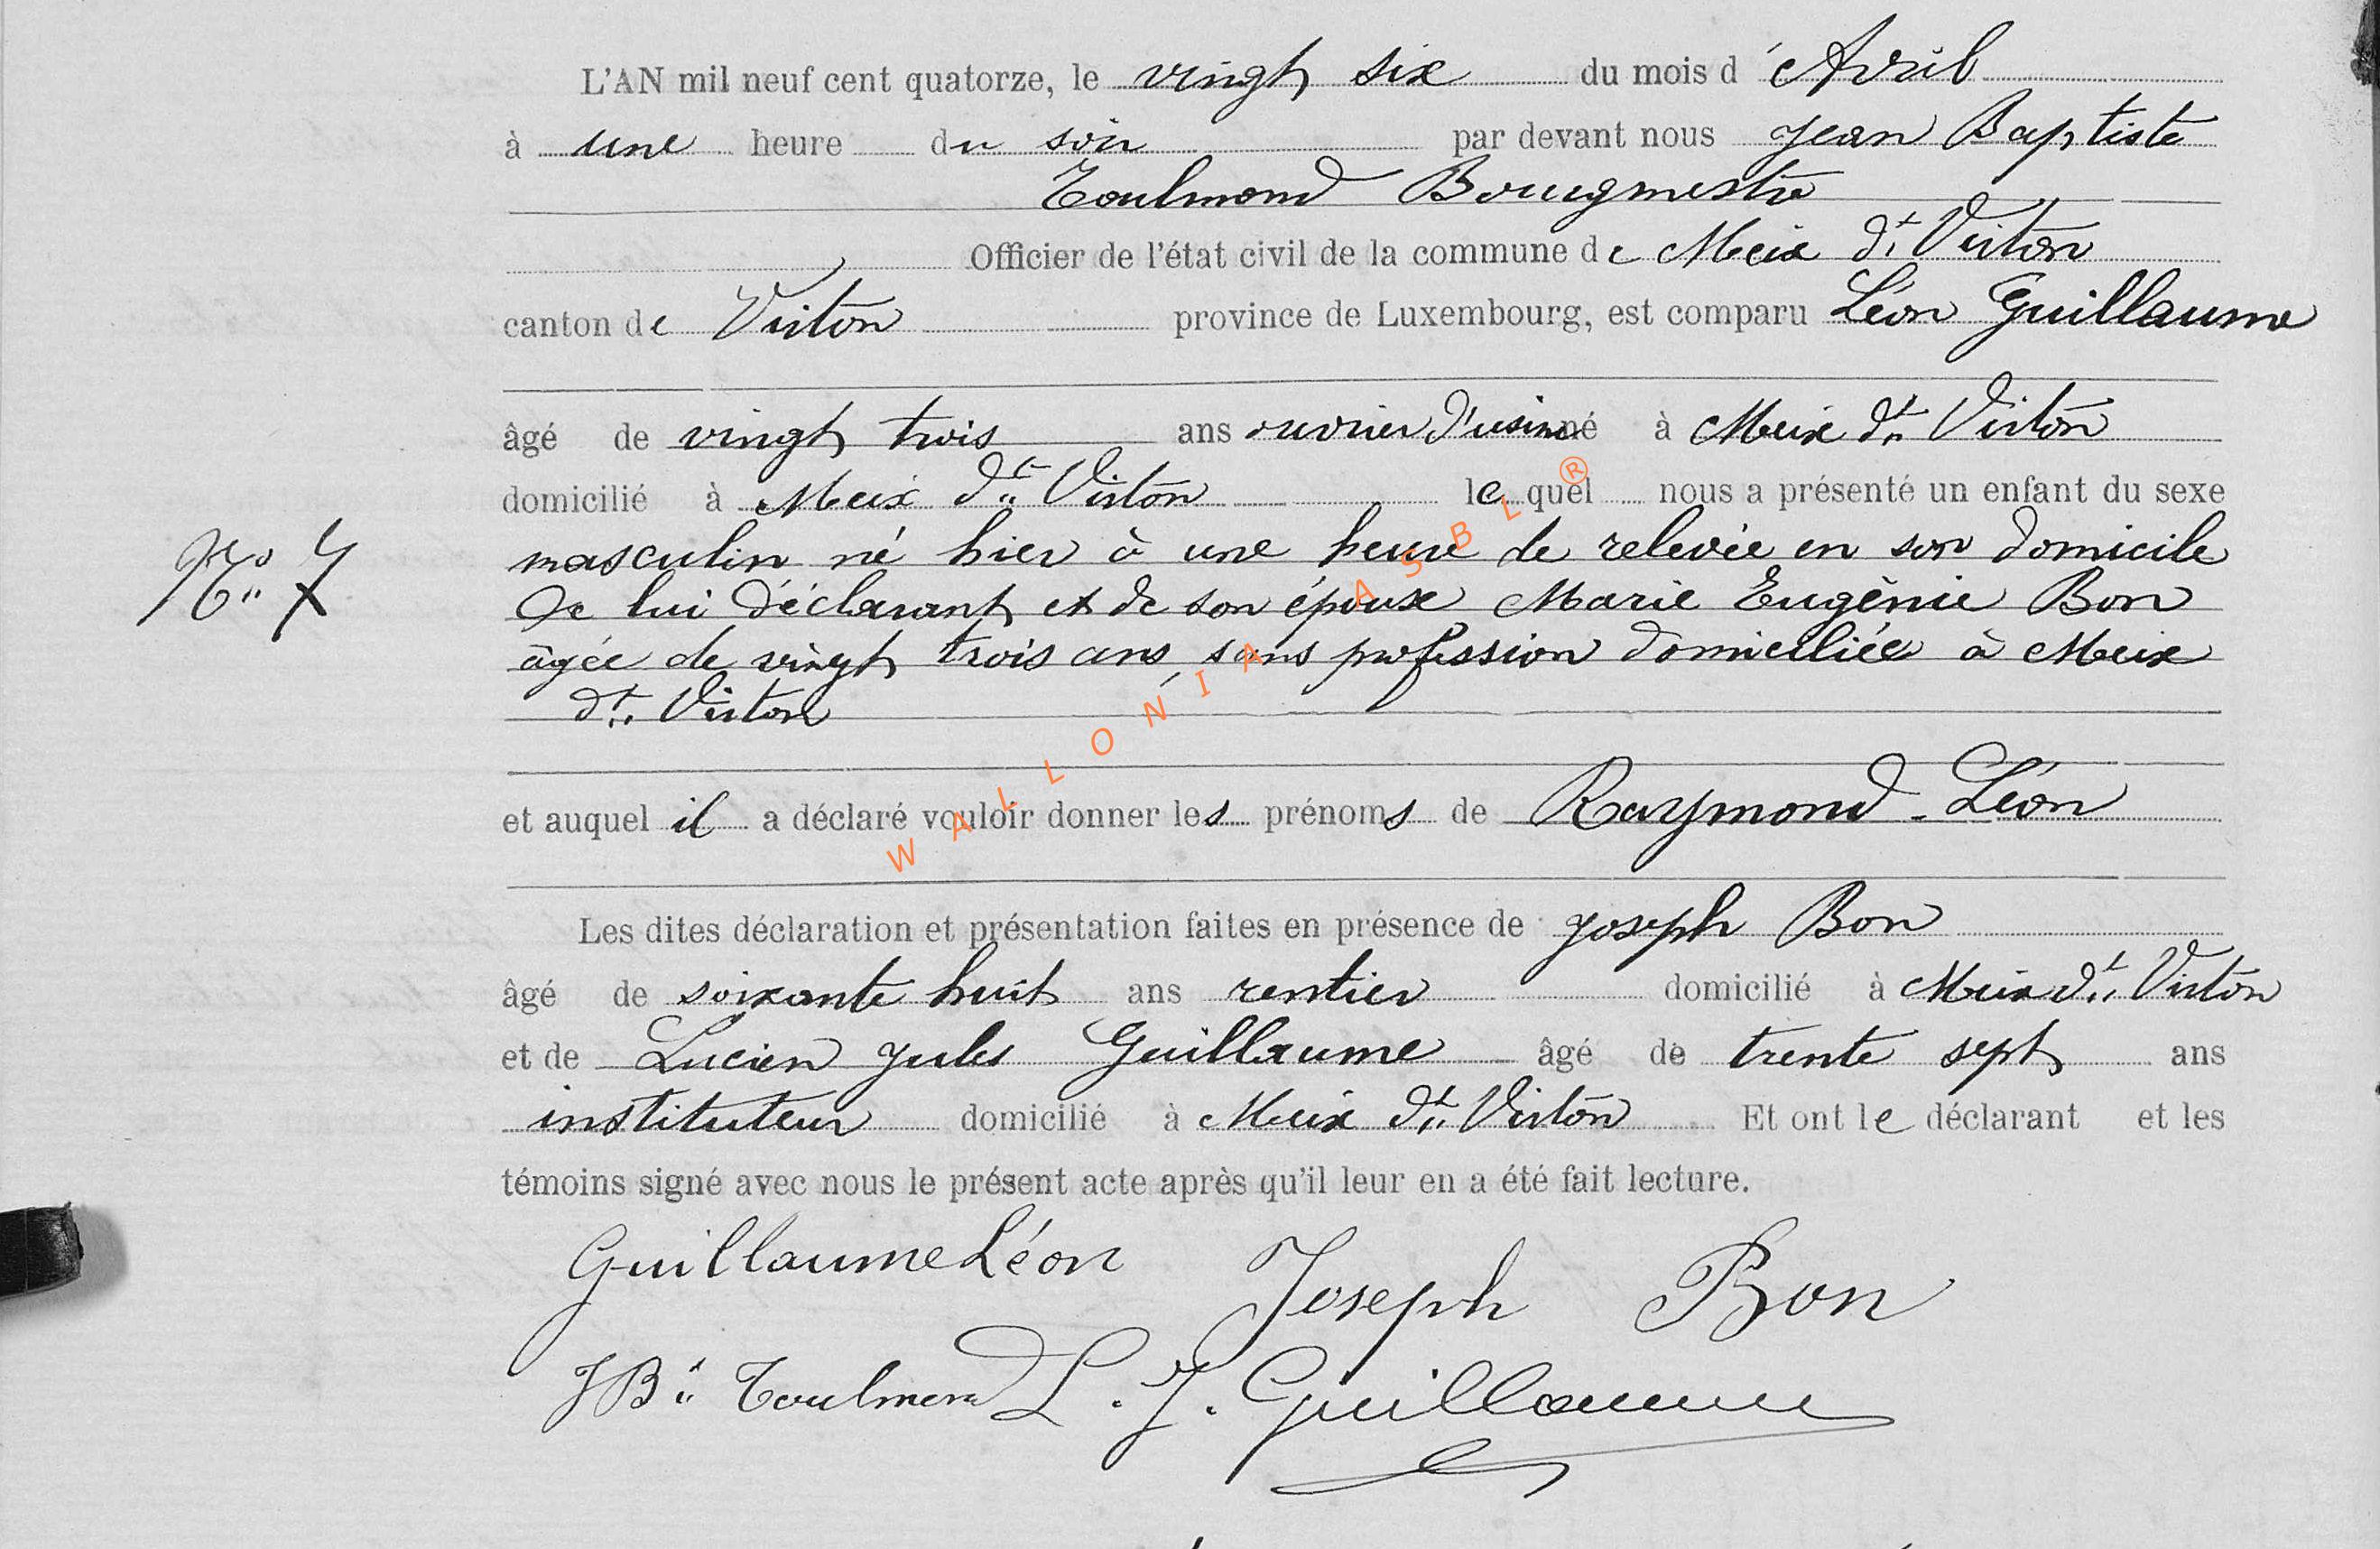 L'AN mil neuf cent quatorze, le vingt six du mois d'Avril
à une heure du soir par devant nous Jean Baptiste
Toulmond Bourgmestre
Officier de l'état civil de la commune de Meix dt Virton
canton de Virton province de Luxembourg, est comparu Léon Guillaume
âgé de vingt trois ans ouvrier d'usine né à Meix dt Virton
domicilié à Meix dt Virton lequel nous a présenté un enfant du sexe
masculin né hier à une heure de relevée en son domicile
N° 7
De lui déclarant et de son épouse Marie Eugènie Bon
âgée de vingt trois ans, sans profession domicilliée à Meix
dt Virton
et auquel il a déclaré vouloir donner les prénoms de Raymond - Léon
Les dites déclaration et présentation faites en présence de Joseph Bon
âgé de soixante huit ans rentier domicilié à Meix dt Virton
et de Lucien Jules Guillaume âgé de trente sept ans
instituteur domicilié à Meix dt Virton Et ont le déclarant et les
témoins signé avec nous le présent acte après qu'il leur en a été fait lecture.
Guillaume Léon Joseph Bon
JBte Toulmond L. J. Guillaume
WALLONIA ASBL ®